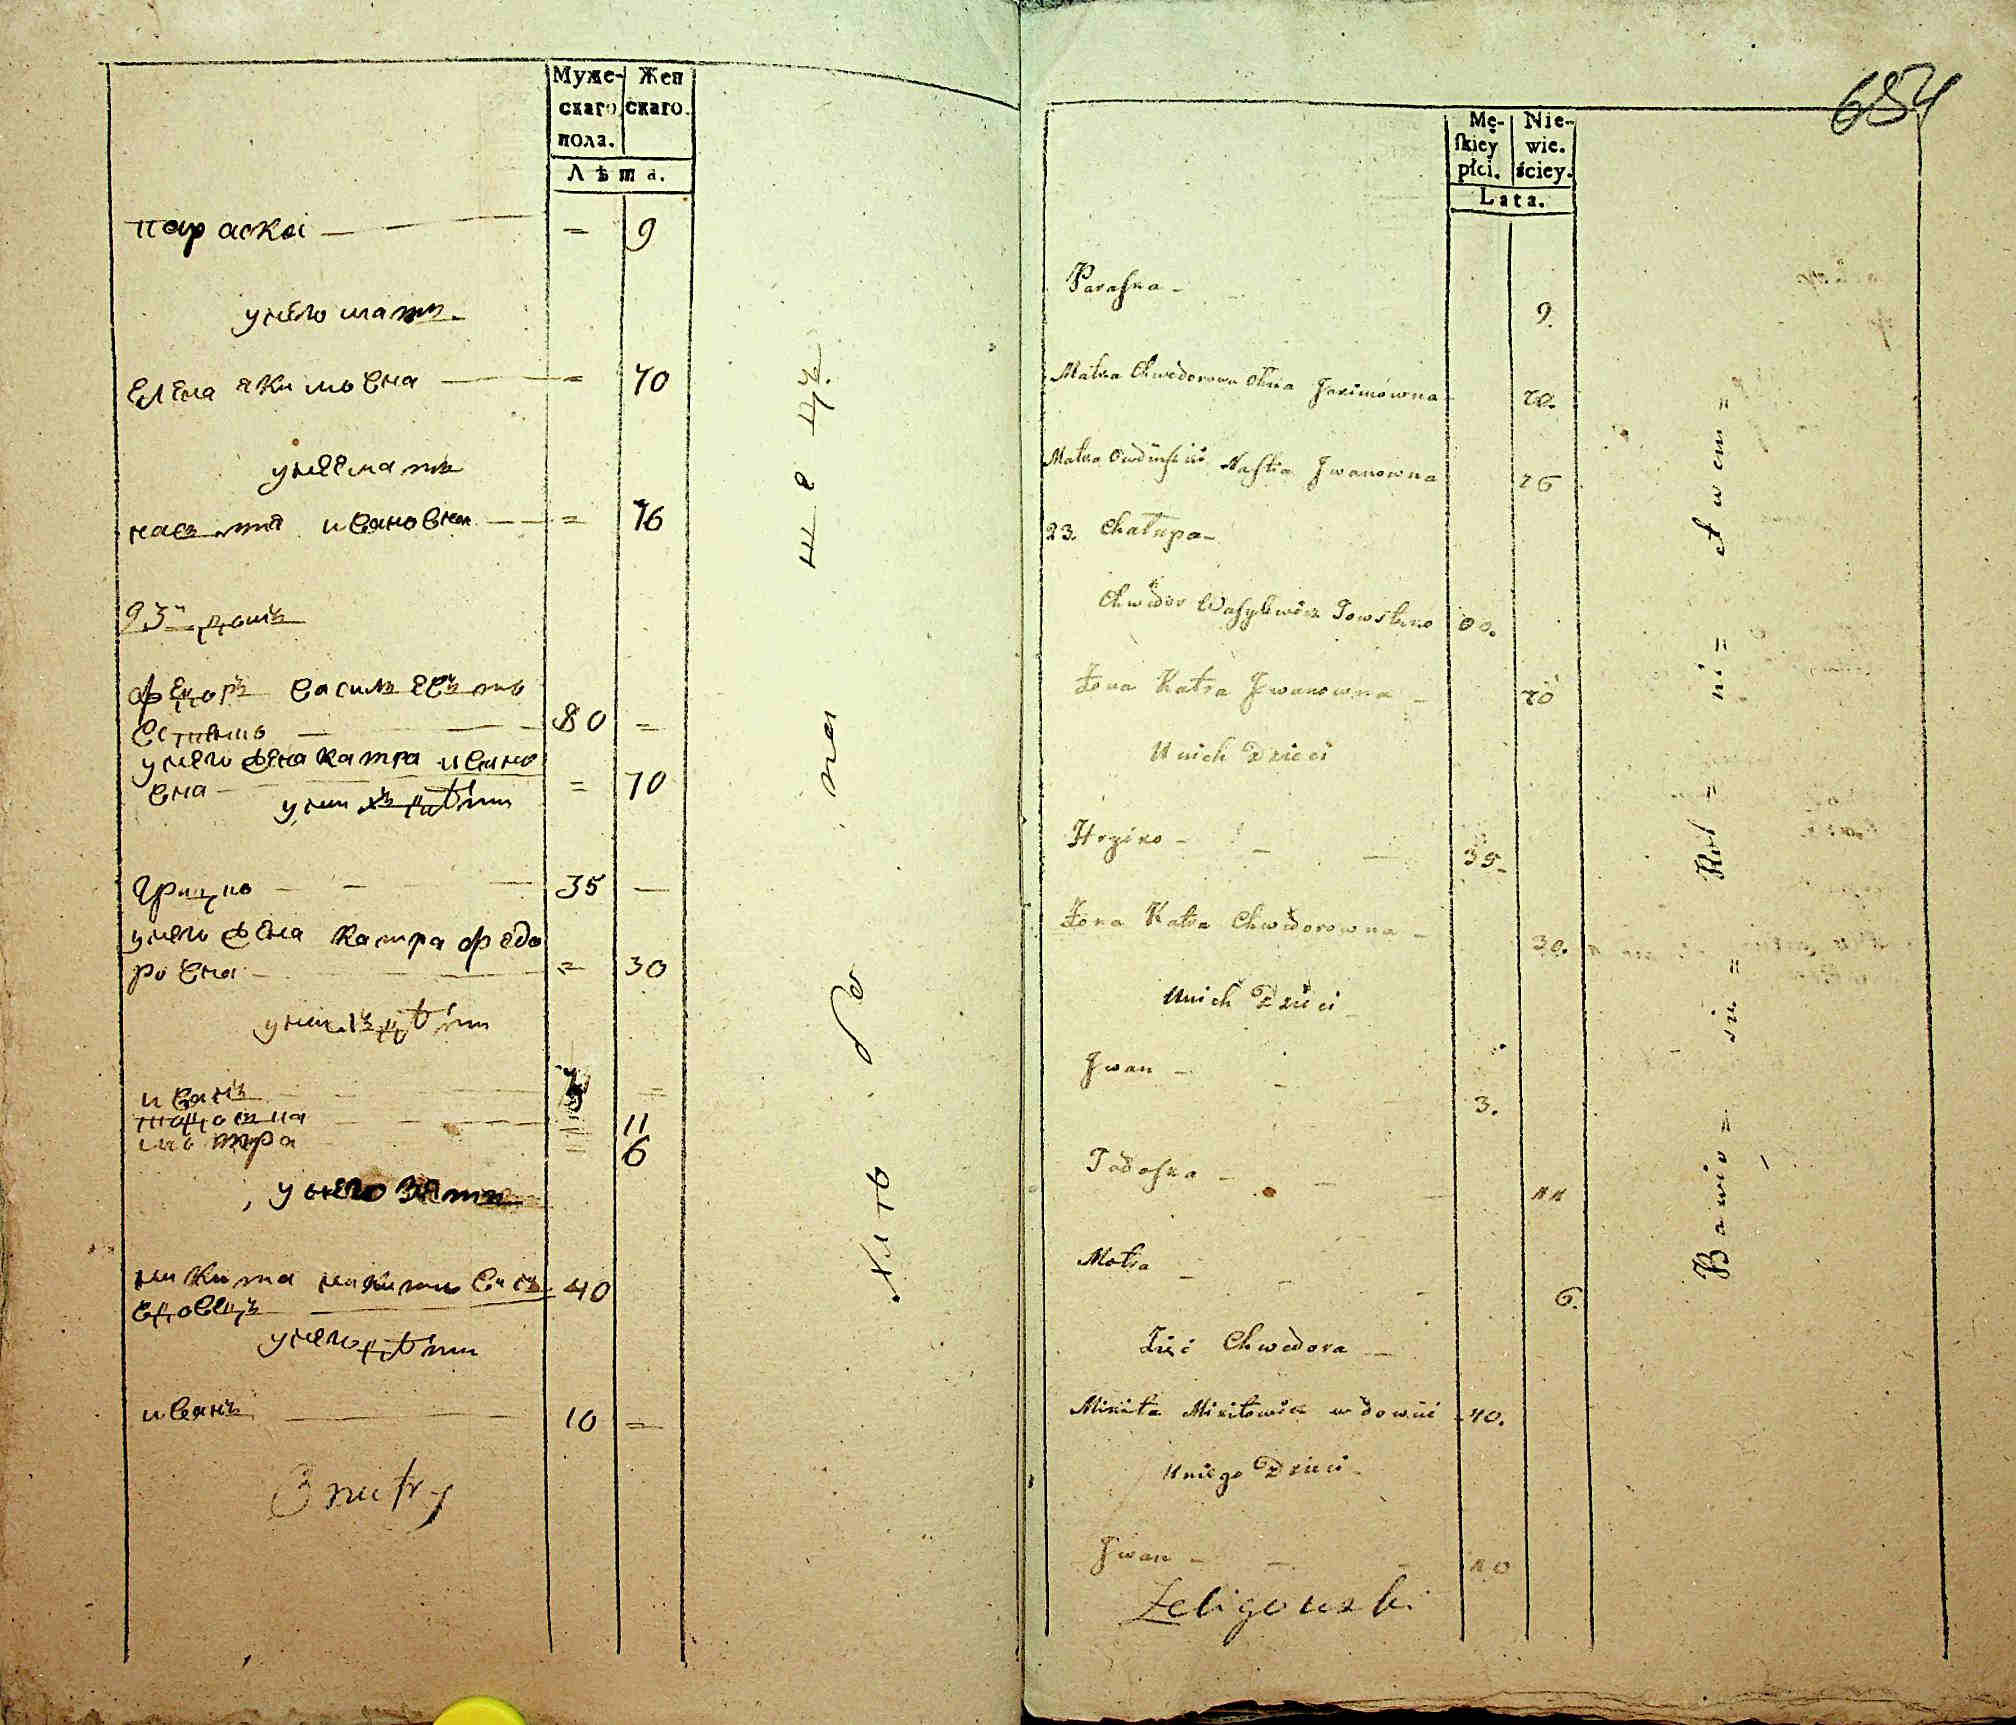 Муже-
скаго
пола.
Жен
скаго.
Лѣта.
параска — 9
унего мать
Елена якимовна — = 70
унее мать
настя ивановна — = 76
23 домъ
федоръ василевъ то
встыко — 80 =
унего жена катра ивано
вна — = 70
унихъ дѣти
Грицко — 35 —
унего жена катра федо
ровна — = 30
унихъ дѣти
иванъ — =
тодоска — = 11
мотра = 6
унего зять
микита микитовичъ
вдовецъ — 40
унего дѣти
иванъ — 10 =
684
Mę-
skiey
płci.
Nie-
wie.
ściey.
Lata.
Paraska - 9.
Matka Chwedorowa Jakimówna 70.
Matka Nastia Jwanowna 76
23. Chałupa-
Chwedor Wasylewicz Towstyko 80.
Żona Katra Jwanowna - 70
U nich Dzieci
Hryćko - 35-
Żona Katra Chwedorowna - 30.
U nich Dzieci
Jwan - 3.
Todoska - 11
Motra - 6.
Zięć Chwedora -
Mikita Mikitowicz wdowiec 40.
U niego Dzieci-
Jwan - 10
Żeligowski
Rol = ni = ctwem =
Bawio = sie =